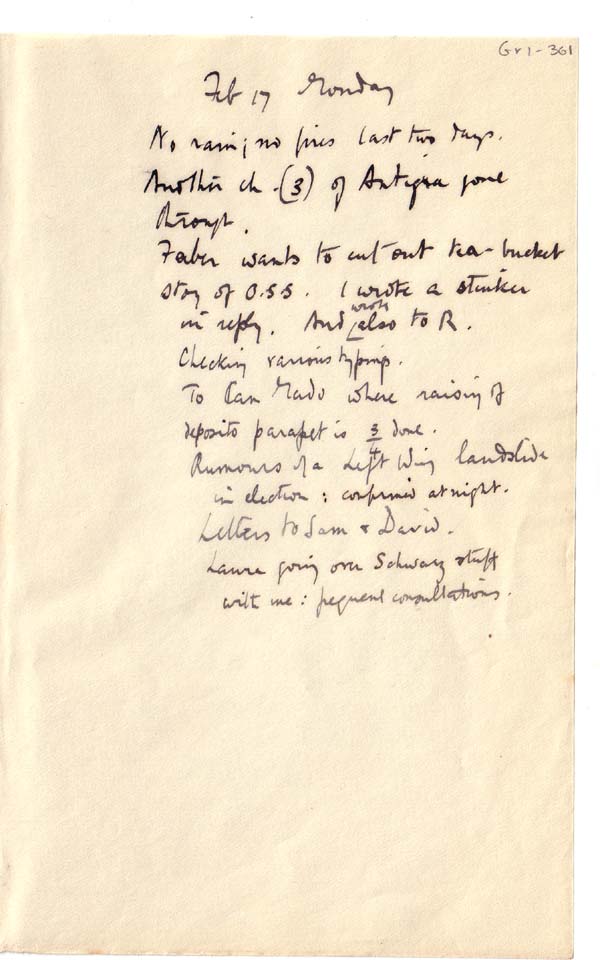 Gr1-361
Feb 17 Monday
No rain; no fires last two days.
Another ch. (3) of Antigua gone
through.
Faber wants to cut out tea-bucket
story of O.S.S. I wrote a stinker
in reply. And [wrote] also to R.
Checking various typings.
To Can Mado where raising of
deposito parapet is 3/4 done.
Rumours of a Left Wing landslide
in election: confirmed at night.
Letters to Sam & David.
Laura going over Schwarz stuff
with me: frequent consultations.